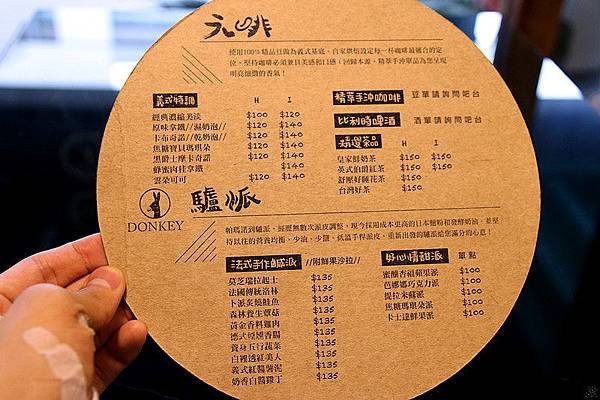 元啡
使用100%精品豆做為義式基底,自家烘焙設定每一杯咖啡最適合的定
位。堅持咖啡必須兼具美感和口感,回歸本源,精萃手沖單品為您呈現
明亮細緻的香氣!
義式特調 H I
經典濃縮美淡 $100 $120
原味拿鐵//濕奶泡// $120 $140
卡布奇諾//乾奶泡// $120 $140
焦糖寶貝瑪琪朵 $120 $140
黑爵士摩卡奇諾 $120 $140
蜂蜜肉桂拿鐵 $120 $140
雲朵可可 $120 $140
精萃手沖咖啡 豆單請詢問吧台
比利時啤酒 酒單請詢問吧台
精選茶品 H I
皇家鮮奶茶 $150 $150
英式伯爵紅茶 $150 $150
舒壓好睡花茶 $150
台灣好茶 $150
DONKEY
驢派
帕瑪諾到驢派,經歷無數次派皮調整,現今採用成本更高的日本麵粉和發酵奶油,並堅
持以往的營養均衡,少油,少鹽,低溫手桿派皮,重新出發的驢派給您滿分的心意!
法式手作鹹派 //附鮮果沙拉//
莫芝瑞拉起士 $135
法國傳統洛林 $135
卜派炙燒鮭魚 $135
森林養生蕈菇 $135
黃金香料雞肉 $135
德式煙燻香腸 $135
養身五行蔬菜 $135
白裡透紅美人 $135
義式紅醬薯泥 $135
奶香白醬雞丁 $135
好心情甜派 單點
蜜釀香福蘋果派 $100
芭娜娜巧克力派 $100
提拉米蘇派 $100
焦糖瑪琪朵派 $100
卡士達鮮果派 $100